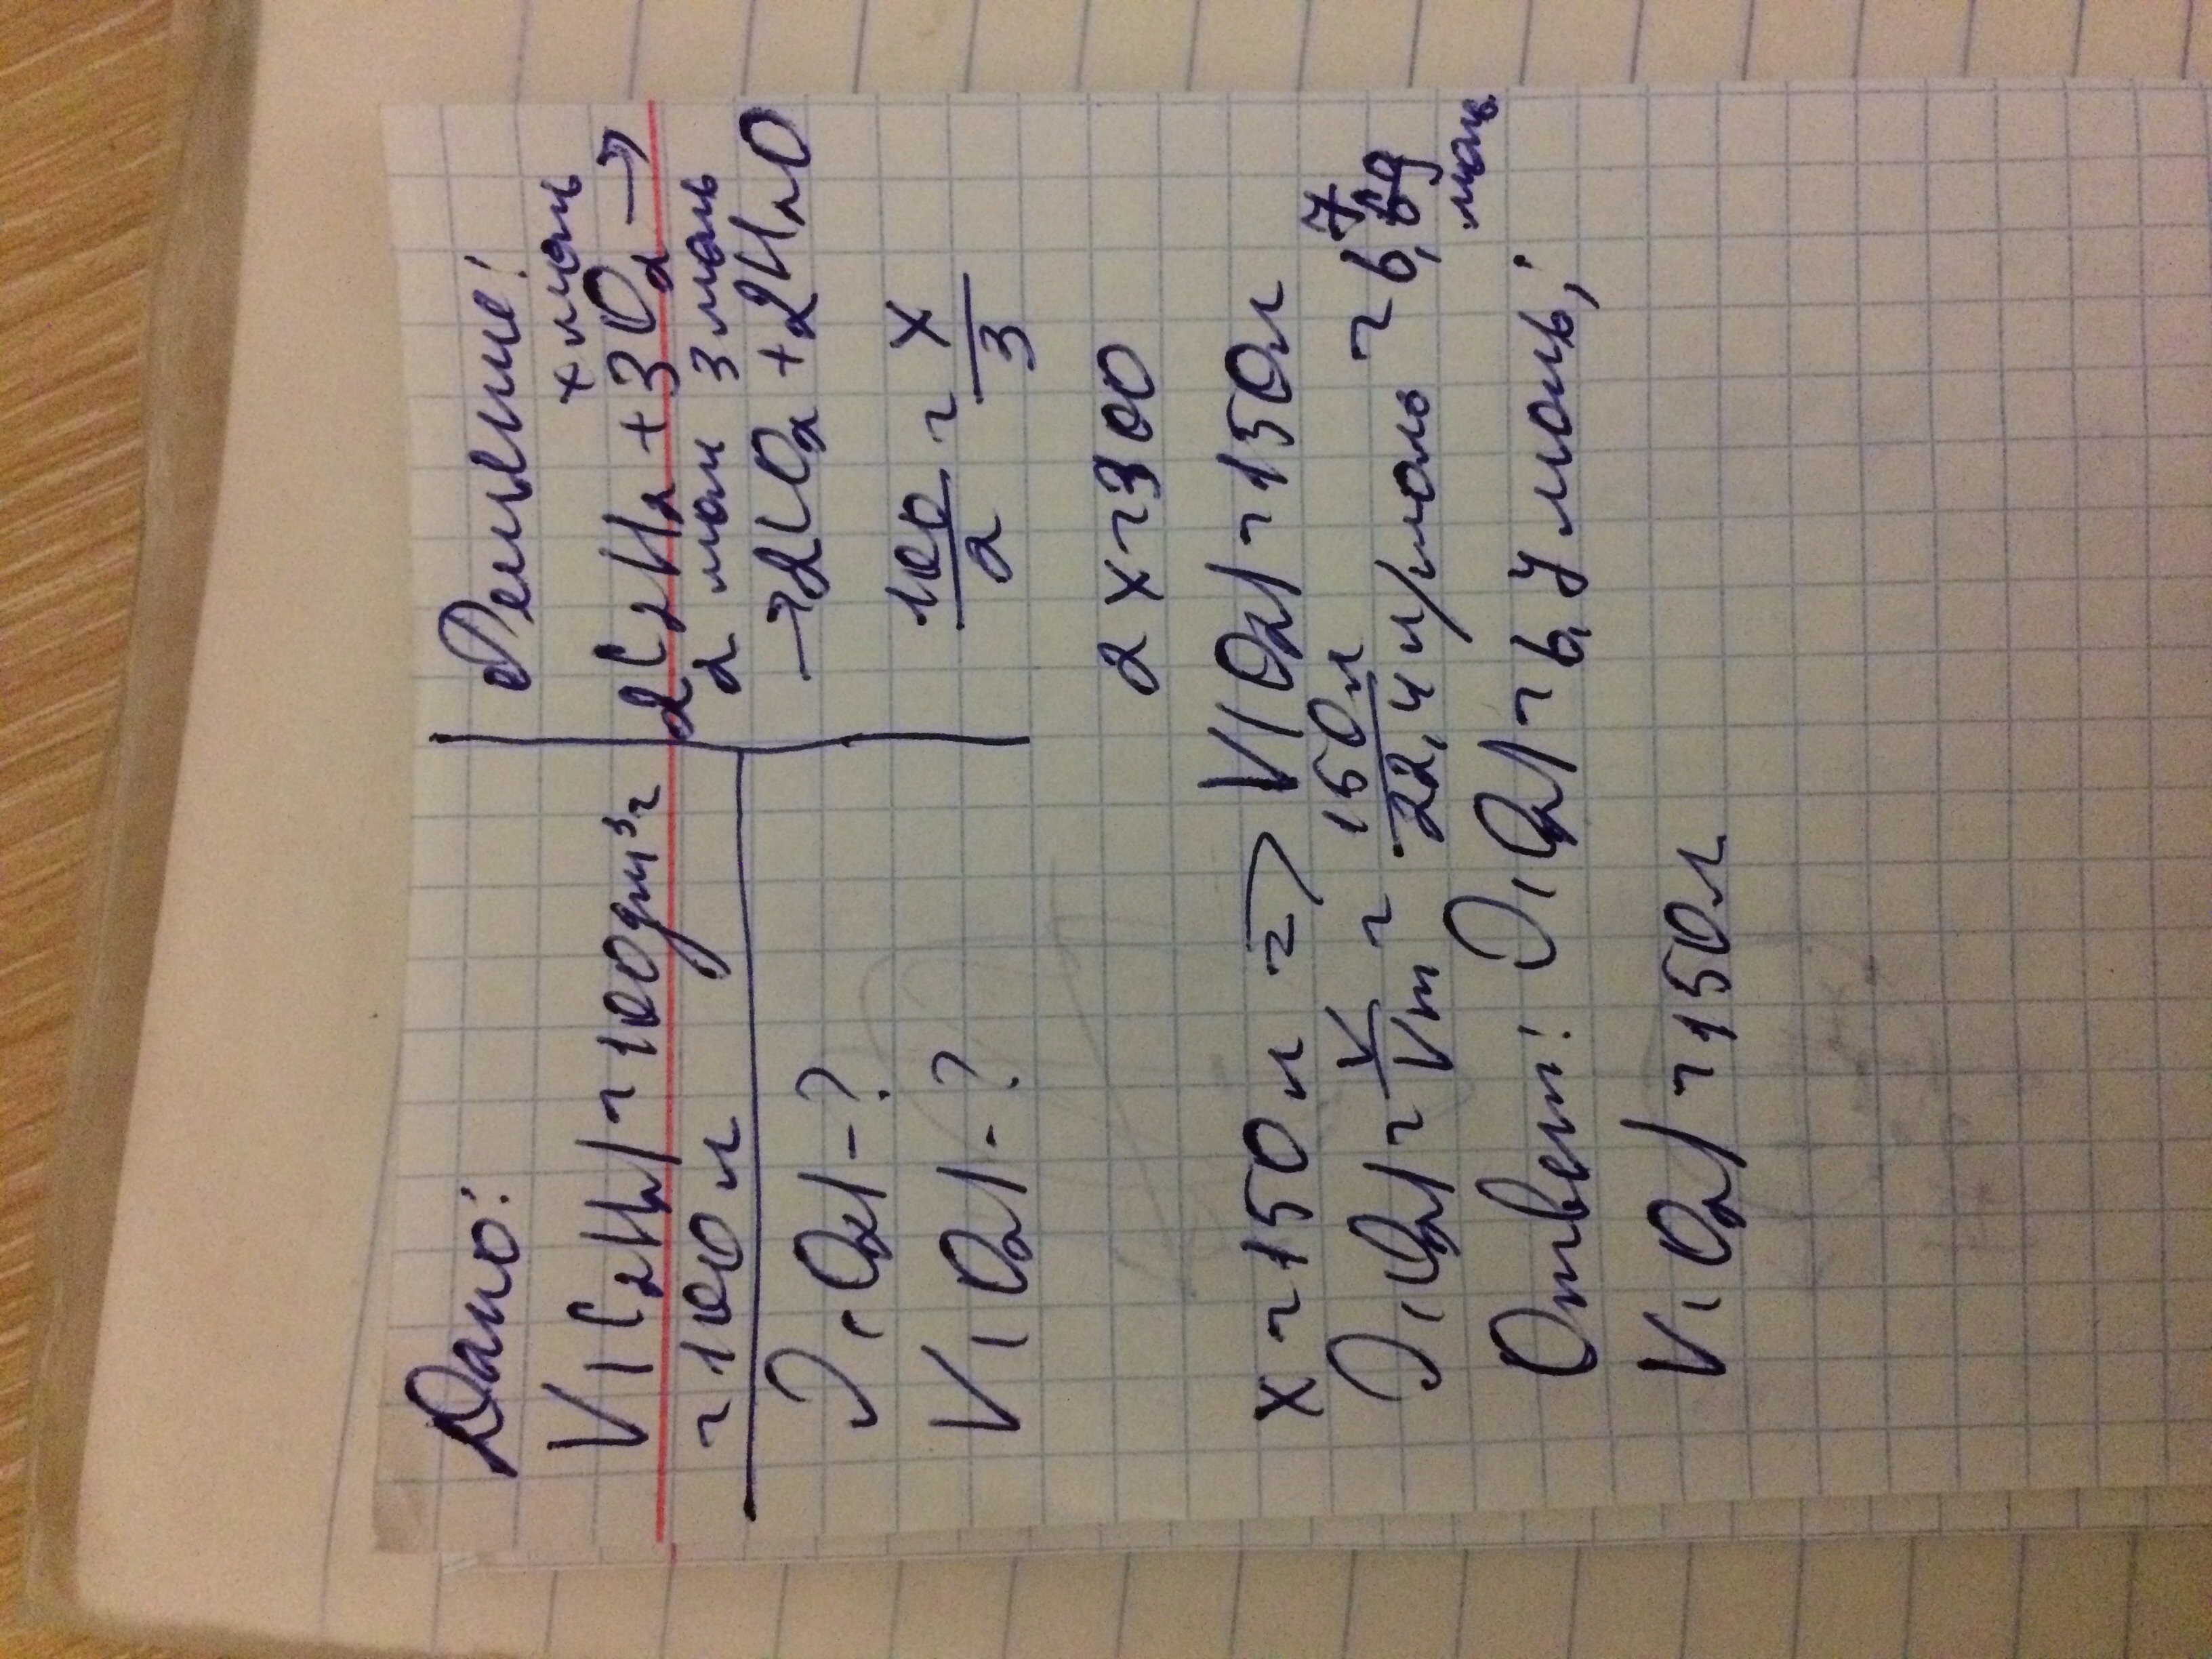 Дано:
V(C₂H₂) = 100дм³ =
= 100 л
ν(O₂) - ?
V(O₂) - ?
Решение:
x моль
2C₂H₂ + 3O₂ →
2 моль 3 моль
→ 2CO₂ + 2H₂O
100/2 = x/3
2x = 300
x = 150 л => V(O₂) = 150л
ν(O₂) = V/Vm = 150л/22,4л/моль = 6,7 моль
Ответ: ν(O₂) = 6,7 моль;
V(O₂) = 150л